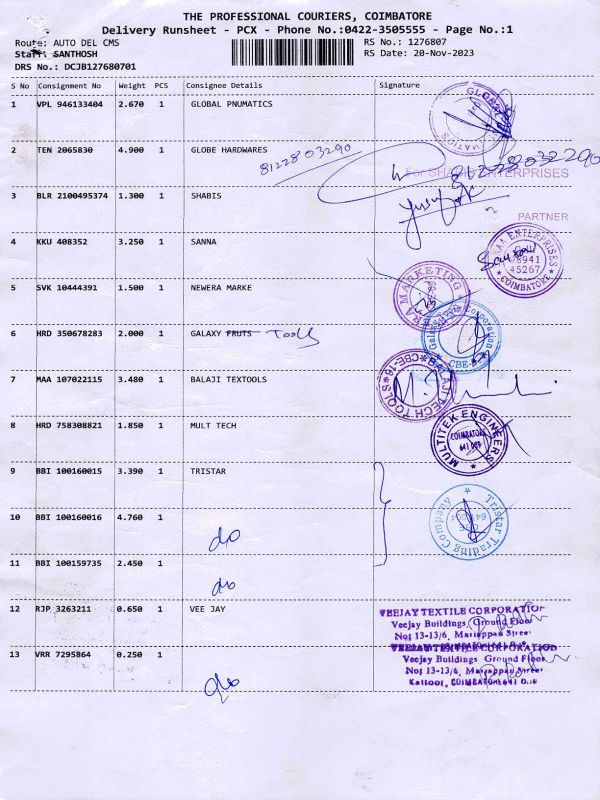 THE PROFESSIONAL COURIERS, COIMBATORE
Delivery Runsheet - PCX - Phone No.:0422-3505555 - Page No.:1
Route: AUTO DEL CMS
RS No.: 1276807
Staff: SANTHOSH
RS Date: 20-Nov-2023
DRS No.: DCJB127680701
S No Consignment No Weight PCS Consignee Details Signature
1 VPL 946133404 2.670 1 GLOBAL PNUMATICS
2 TEN 2065830 4.900 1 GLOBE HARDWARES
8122803290
8122803290
For SHABIS ENTERPRISES
3 BLR 2100495374 1.300 1 SHABIS
PARTNER
4 KKU 408352 3.250 1 SANNA
ENTERPRISES
45267
COIMBATORE
5 SVK 10444391 1.500 1 NEWERA MARKE
MARKETING
6 HRD 350678283 2.000 1 GALAXY FRUTS Tools
Galaxy Corporation
CBE
7 MAA 107022115 3.480 1 BALAJI TEXTOOLS
BALAJI TECH TOOLS CBE-18
8 HRD 758308821 1.850 1 MULT TECH
MULTITEK ENGINEERS
COIMBATORE
9 BBI 100160015 3.390 1 TRISTAR
10 BBI 100160016 4.760 1
Tristar Trading Company
do
11 BBI 100159735 2.450 1
do
12 RJP 3263211 0.650 1 VEE JAY
VEEJAY TEXTILE CORPORATION
Veejay Buildings, Ground Floor
No: 13-13/6, Mariappan Street
13 VRR 7295864 0.250 1
VEEJAY TEXTILE CORPORATION
Veejay Buildings Ground Floor
No: 13-13/6, Mariappan Street
Kattoor, COIMBATORE-641
do